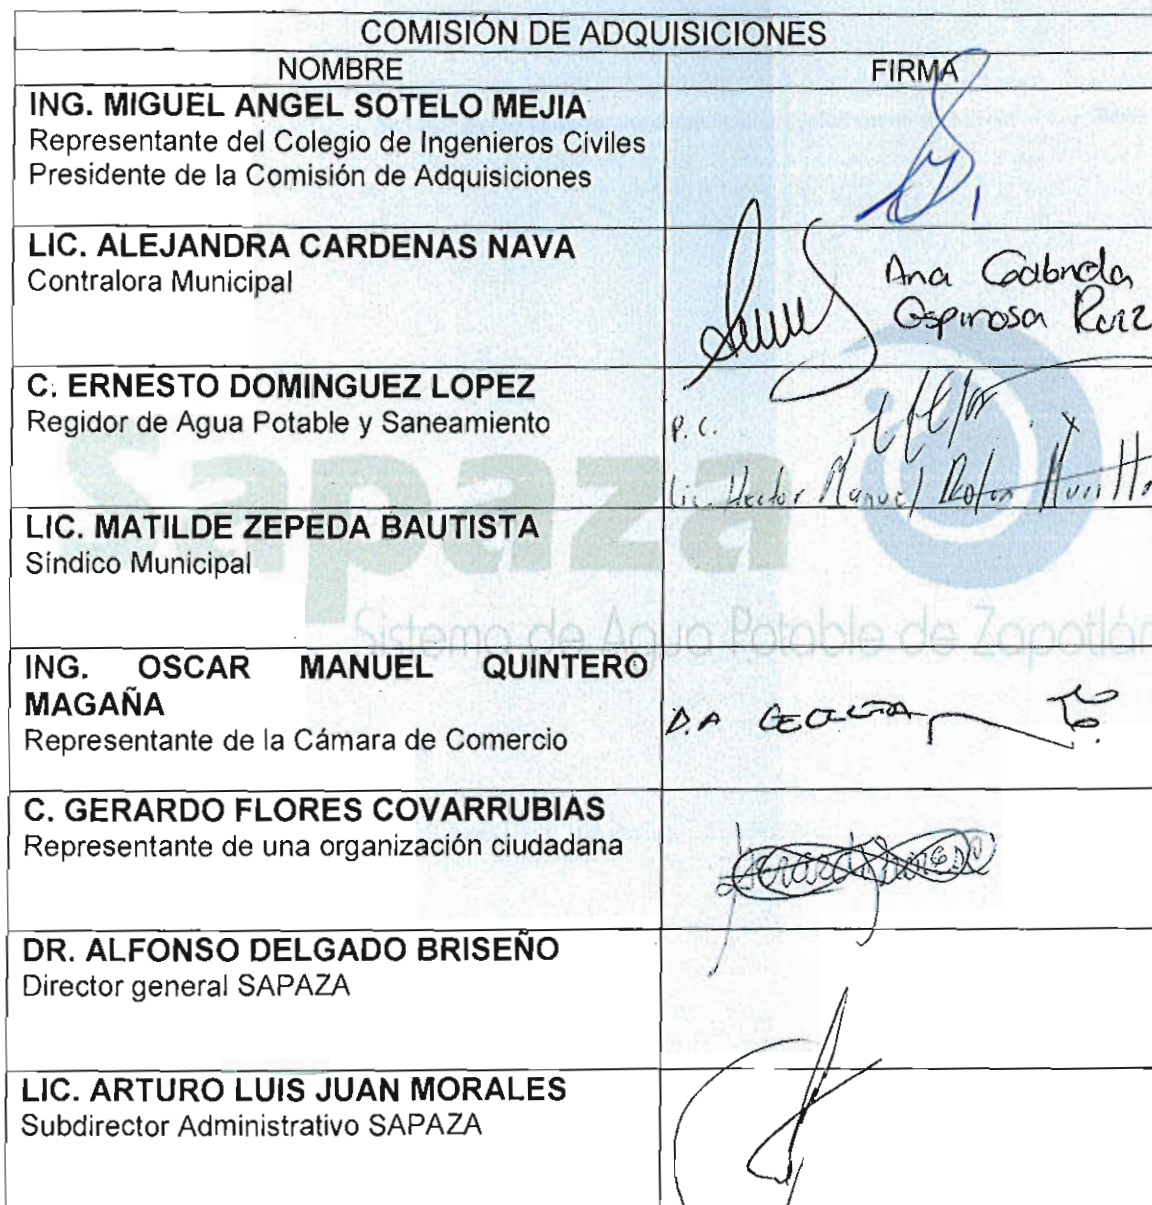 COMISIÓN DE ADQUISICIONES
NOMBRE FIRMA
ING. MIGUEL ANGEL SOTELO MEJIA
Representante del Colegio de Ingenieros Civiles
Presidente de la Comisión de Adquisiciones
LIC. ALEJANDRA CARDENAS NAVA
Contralora Municipal
Ana Gabriela
Espinosa Ruiz
C. ERNESTO DOMINGUEZ LOPEZ
Regidor de Agua Potable y Saneamiento
P. C.
Lic. Hector Manuel
LIC. MATILDE ZEPEDA BAUTISTA
Síndico Municipal
Sapaza
Sistema de Agua Potable de Zapotlán
ING. OSCAR MANUEL QUINTERO
MAGAÑA
Representante de la Cámara de Comercio
C. GERARDO FLORES COVARRUBIAS
Representante de una organización ciudadana
DR. ALFONSO DELGADO BRISEÑO
Director general SAPAZA
LIC. ARTURO LUIS JUAN MORALES
Subdirector Administrativo SAPAZA